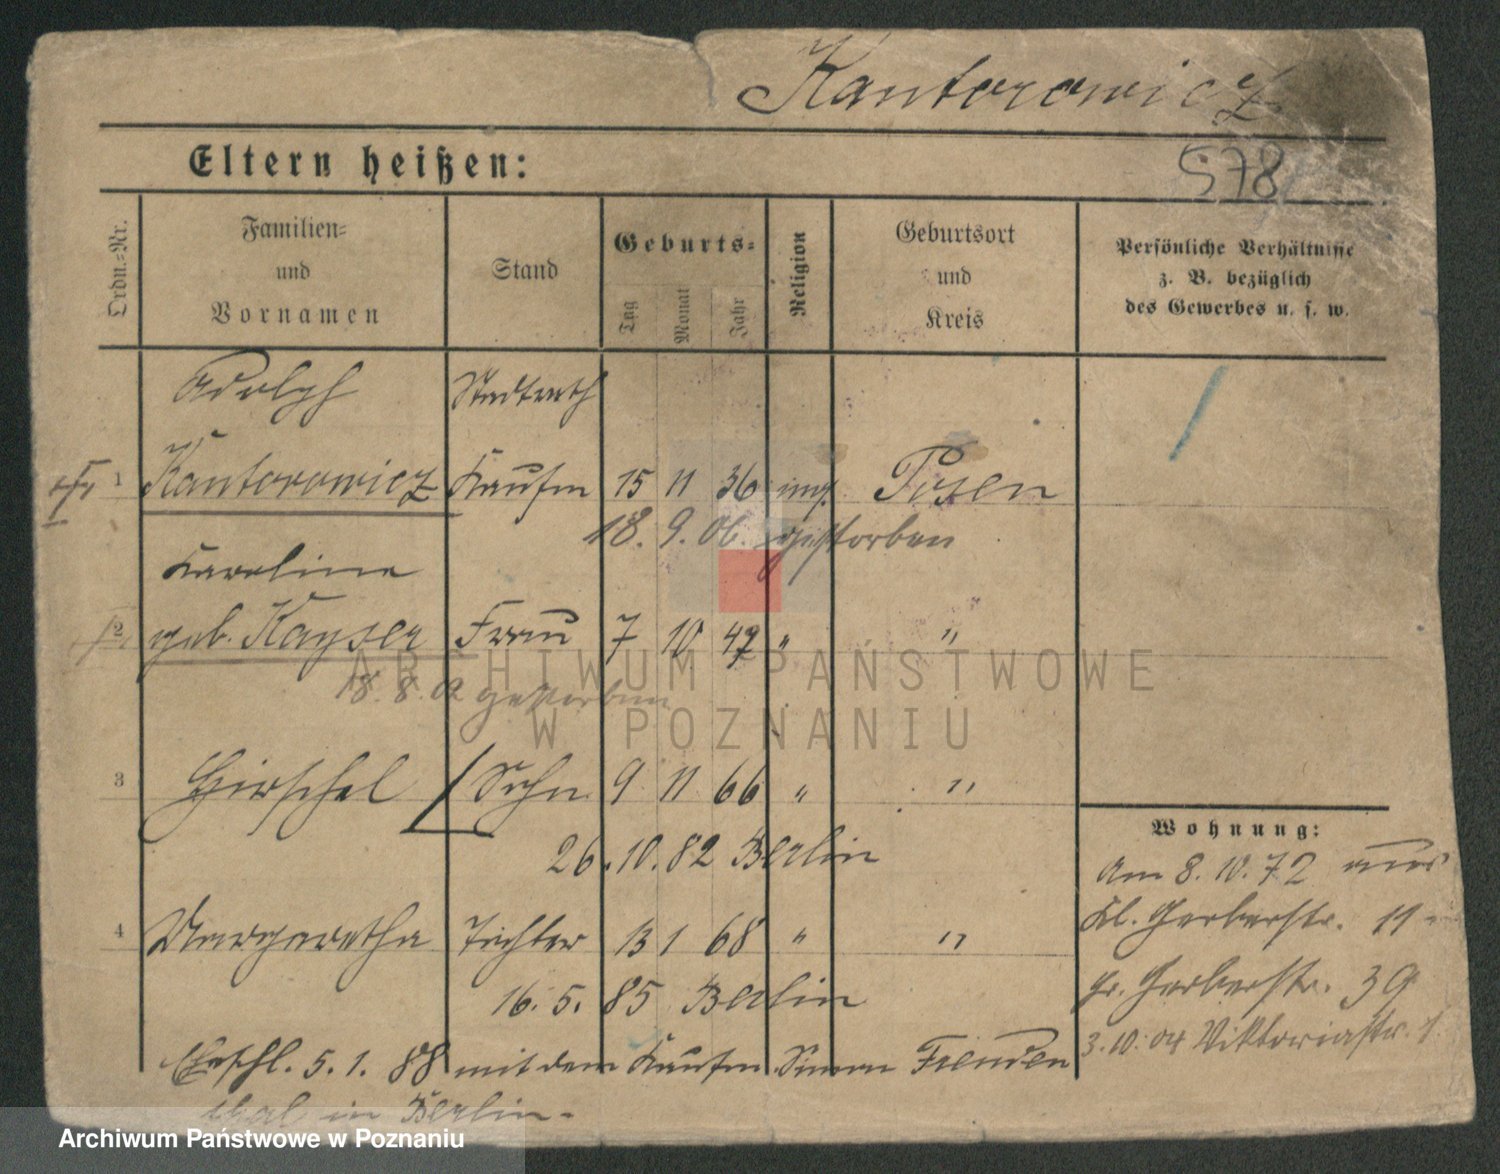 Kantorowicz
Eltern heißen:
578
Ordn.-Nr.
Familien-
und
Vornamen
Stand
Geburts-
Tag
Monat
Jahr
Religion
Geburtsort
und
Kreis
Persönliche Verhältnisse
z. B. bezüglich
des Gewerbes u. s. w.
Adolph Stadtrath
1 Kantorowicz Kaufm 15 11 36 mos. Posen
18. 9. 06. gestorben
Karoline
2 geb. Kayser Frau 7 10 47 " "
18. 8. gestorben
ARCHIWUM PAŃSTWOWE
W POZNANIU
3 Hirschel Sohn 9 11 66 " "
26. 10. 82 Berlin
4 Margaretha Tochter 13 1 68 " "
16. 5. 85 Berlin
Eheschl. 5. 1. 88 mit dem Kaufm. Simon Freuden
thal in Berlin.
Wohnung:
Am 8. 10. 72 aus
Kl. Gerberstr. 11
Gr. Gerberstr. 39
3. 10. 04 Viktoriastr.
Archiwum Państwowe w Poznaniu